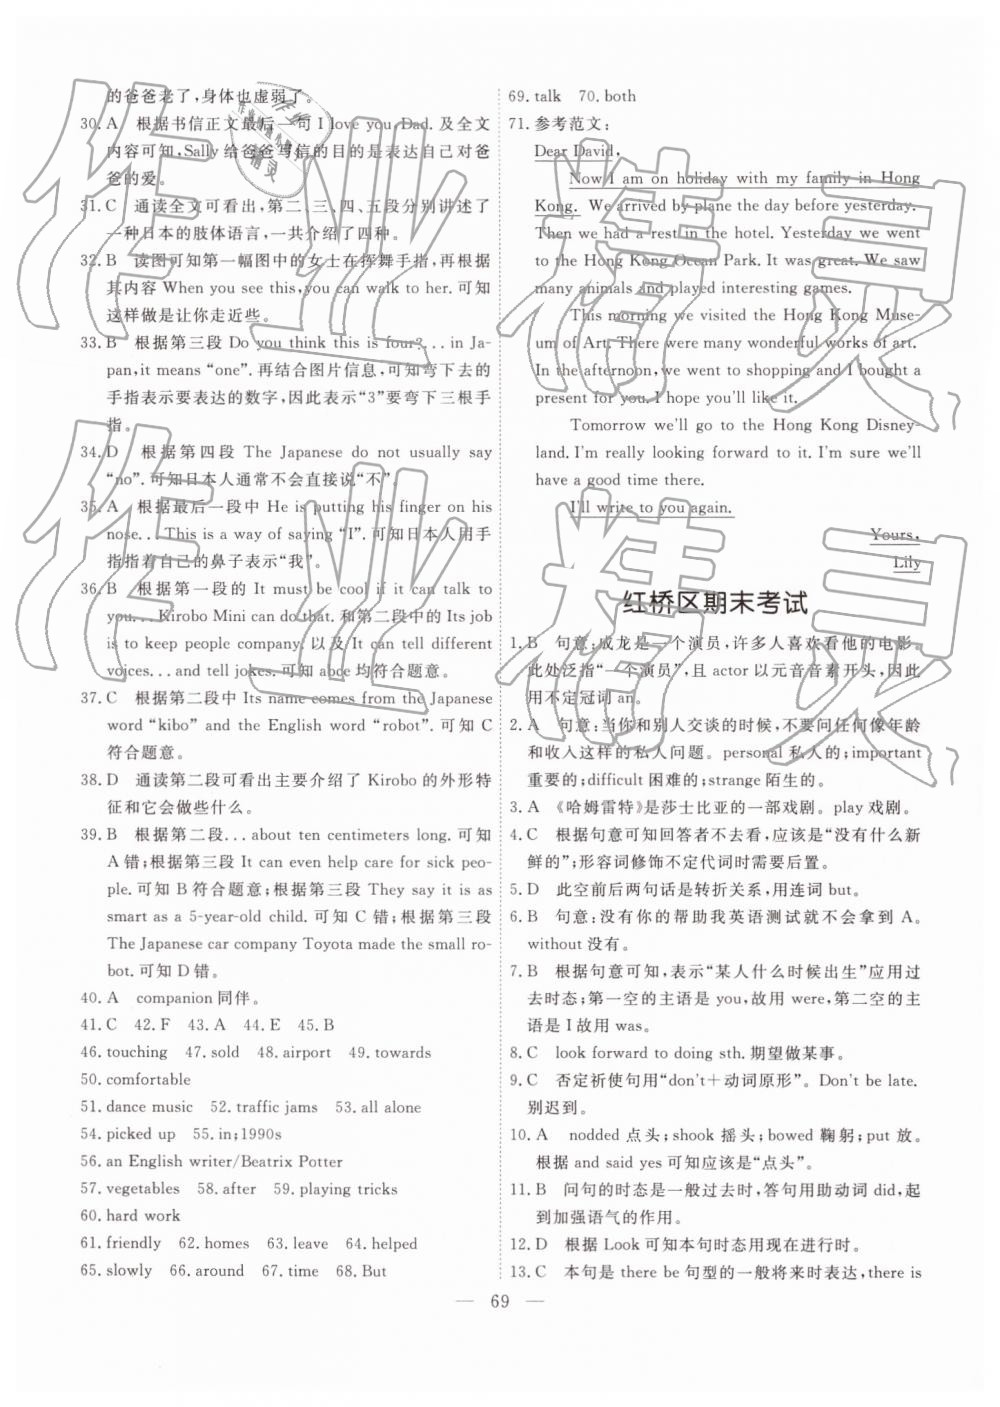 的爸爸老了,身体也虚弱了。
30. A 根据书信正文最后一句 I love you, Dad. 及全文
内容可知, Sally 给爸爸写信的目的是表达自己对爸
爸的爱。
31. C 通读全文可看出,第二、三、四、五段分别讲述了
一种日本的肢体语言,一共介绍了四种。
32. B 读图可知第一幅图中的女士在挥舞手指,再根据
其内容 When you see this, you can walk to her. 可知
这样做是让你走近些。
33. B 根据第三段 Do you think this is four?... in Ja-
pan, it means “one”. 再结合图片信息,可知弯下去的
手指表示要表达的数字,因此表示“3”要弯下三根手
指。
34. D 根据第四段 The Japanese do not usually say
“no”. 可知日本人通常不会直接说“不”。
35. A 根据最后一段中 He is putting his finger on his
nose... This is a way of saying “I”. 可知日本人用手
指指着自己的鼻子表示“我”。
36. B 根据第一段的 It must be cool if it can talk to
you... Kirobo Mini can do that. 和第二段中的 Its job
is to keep people company. 以及 It can tell different
voices... and tell jokes. 可知 abce 均符合题意。
37. C 根据第二段中 Its name comes from the Japanese
word “kibo” and the English word “robot”. 可知 C
符合题意。
38. D 通读第二段可看出主要介绍了 Kirobo 的外形特
征和它会做些什么。
39. B 根据第二段... about ten centimeters long. 可知
A 错;根据第三段 It can even help care for sick peo-
ple. 可知 B 符合题意;根据第三段 They say it is as
smart as a 5-year-old child. 可知 C 错;根据第三段
The Japanese car company Toyota made the small ro-
bot. 可知 D 错。
40. A companion 同伴。
41. C 42. F 43. A 44. E 45. B
46. touching 47. sold 48. airport 49. towards
50. comfortable
51. dance music 52. traffic jams 53. all alone
54. picked up 55. in; 1990s
56. an English writer/Beatrix Potter
57. vegetables 58. after 59. playing tricks
60. hard work
61. friendly 62. homes 63. leave 64. helped
65. slowly 66. around 67. time 68. But
69. talk 70. both
71. 参考范文:
Dear David,
Now I am on holiday with my family in Hong
Kong. We arrived by plane the day before yesterday.
Then we had a rest in the hotel. Yesterday we went
to the Hong Kong Ocean Park. It was great. We saw
many animals and played interesting games.
This morning we visited the Hong Kong Muse-
um of Art. There were many wonderful works of art.
In the afternoon, we went to shopping and I bought a
present for you. I hope you'll like it.
Tomorrow we'll go to the Hong Kong Disney-
land. I'm really looking forward to it. I'm sure we'll
have a good time there.
I'll write to you again.
Yours,
Lily
红桥区期末考试
1. B 句意:成龙是一个演员,许多人喜欢看他的电影。
此处泛指“一个演员”,且 actor 以元音音素开头,因此
用不定冠词 an。
2. A 句意:当你和别人交谈的时候,不要问任何像年龄
和收入这样的私人问题。personal 私人的;important
重要的;difficult 困难的;strange 陌生的。
3. A 《哈姆雷特》是莎士比亚的一部戏剧。play 戏剧。
4. C 根据句意可知回答者不去看,应该是“没有什么新
鲜的”;形容词修饰不定代词时需要后置。
5. D 此空前后两句话是转折关系,用连词 but。
6. B 句意:没有你的帮助我英语测试就不会拿到 A。
without 没有。
7. B 根据句意可知,表示“某人什么时候出生”应用过
去时态;第一空的主语是 you,故用 were,第二空的主
语是 I 故用 was。
8. C look forward to doing sth. 期望做某事。
9. C 否定祈使句用“don't+动词原形”。Don't be late.
别迟到。
10. A nodded 点头;shook 摇头;bowed 鞠躬;put 放。
根据 and said yes 可知应该是“点头”。
11. B 问句的时态是一般过去时,答句用助动词 did,起
到加强语气的作用。
12. D 根据 Look 可知本句时态用现在进行时。
13. C 本句是 there be 句型的一般将来时表达,there is
— 69 —
作业精灵
作业精灵